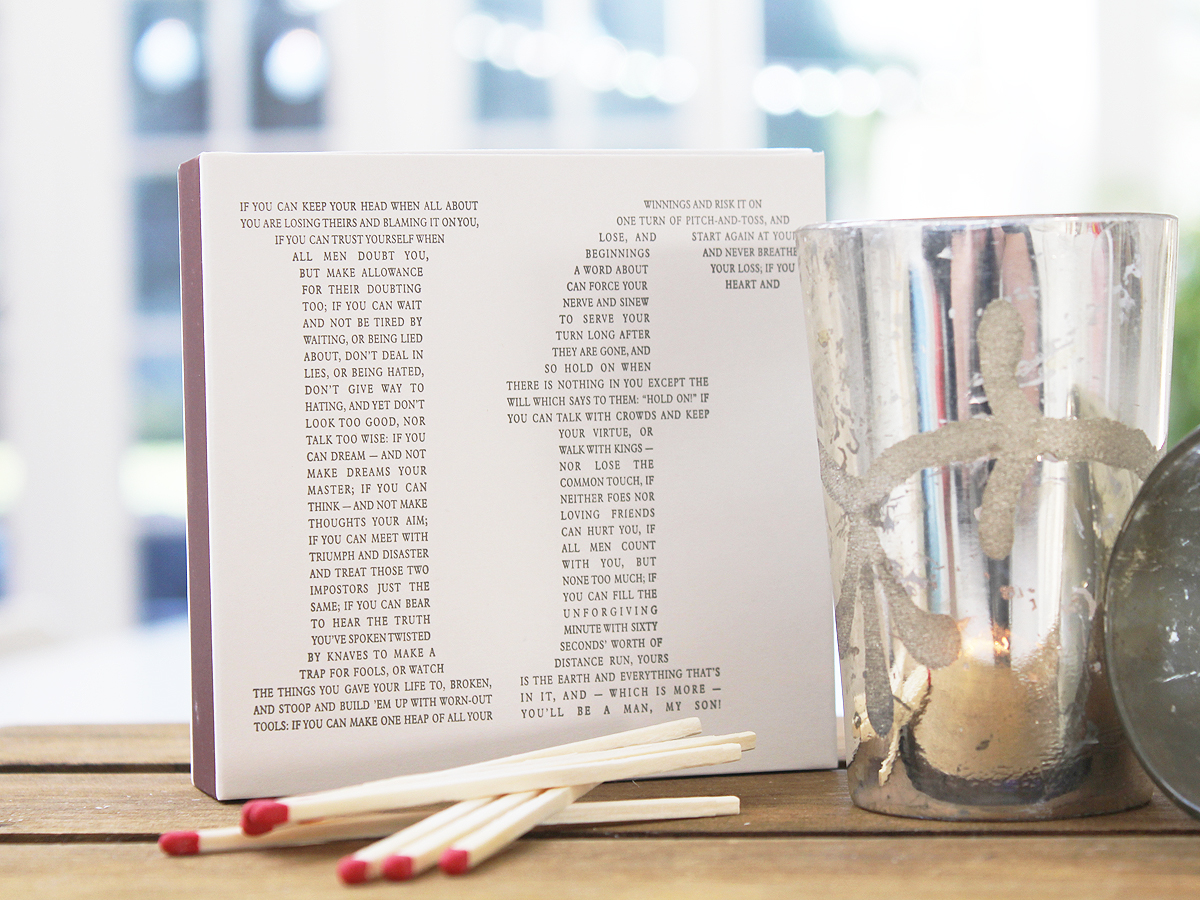 IF YOU CAN KEEP YOUR HEAD WHEN ALL ABOUT
YOU ARE LOSING THEIRS AND BLAMING IT ON YOU,
IF YOU CAN TRUST YOURSELF WHEN
ALL MEN DOUBT YOU,
BUT MAKE ALLOWANCE
FOR THEIR DOUBTING
TOO; IF YOU CAN WAIT
AND NOT BE TIRED BY
WAITING, OR BEING LIED
ABOUT, DON'T DEAL IN
LIES, OR BEING HATED,
DON'T GIVE WAY TO
HATING, AND YET DON'T
LOOK TOO GOOD, NOR
TALK TOO WISE: IF YOU
CAN DREAM — AND NOT
MAKE DREAMS YOUR
MASTER; IF YOU CAN
THINK — AND NOT MAKE
THOUGHTS YOUR AIM;
IF YOU CAN MEET WITH
TRIUMPH AND DISASTER
AND TREAT THOSE TWO
IMPOSTORS JUST THE
SAME; IF YOU CAN BEAR
TO HEAR THE TRUTH
YOU'VE SPOKEN TWISTED
BY KNAVES TO MAKE A
TRAP FOR FOOLS, OR WATCH
THE THINGS YOU GAVE YOUR LIFE TO, BROKEN,
AND STOOP AND BUILD 'EM UP WITH WORN-OUT
TOOLS: IF YOU CAN MAKE ONE HEAP OF ALL YOUR
WINNINGS AND RISK IT ON
ONE TURN OF PITCH-AND-TOSS, AND
LOSE, AND START AGAIN AT YOUR
BEGINNINGS AND NEVER BREATHE
A WORD ABOUT YOUR LOSS; IF YOU
CAN FORCE YOUR HEART AND
NERVE AND SINEW
TO SERVE YOUR
TURN LONG AFTER
THEY ARE GONE, AND
SO HOLD ON WHEN
THERE IS NOTHING IN YOU EXCEPT THE
WILL WHICH SAYS TO THEM: “HOLD ON!” IF
YOU CAN TALK WITH CROWDS AND KEEP
YOUR VIRTUE, OR
WALK WITH KINGS —
NOR LOSE THE
COMMON TOUCH, IF
NEITHER FOES NOR
LOVING FRIENDS
CAN HURT YOU, IF
ALL MEN COUNT
WITH YOU, BUT
NONE TOO MUCH; IF
YOU CAN FILL THE
UNFORGIVING
MINUTE WITH SIXTY
SECONDS' WORTH OF
DISTANCE RUN, YOURS
IS THE EARTH AND EVERYTHING THAT'S
IN IT, AND — WHICH IS MORE —
YOU'LL BE A MAN, MY SON!